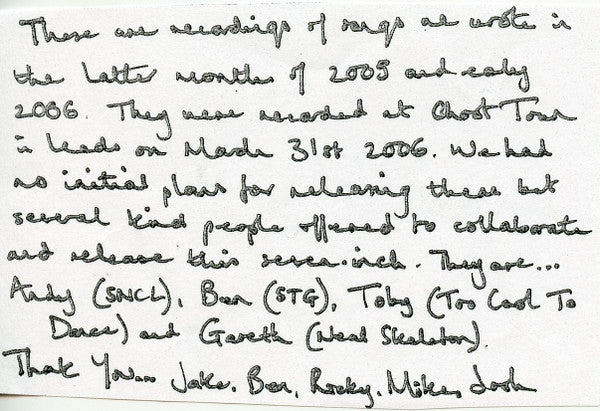 These are recordings of songs we wrote in
the latter months of 2005 and early
2006. They were recorded at Ghost Town
in Leeds on March 31st 2006. We had
no initial plans for releasing these but
several kind people offered to collaborate
and release this seven-inch. They are...
Andy (SNCL), Ben (STG), Toby (Too Cool To
Dance) and Gareth (Neat Skeleton).
Thank You... Jake, Ben, Rocky, Mike, Josh